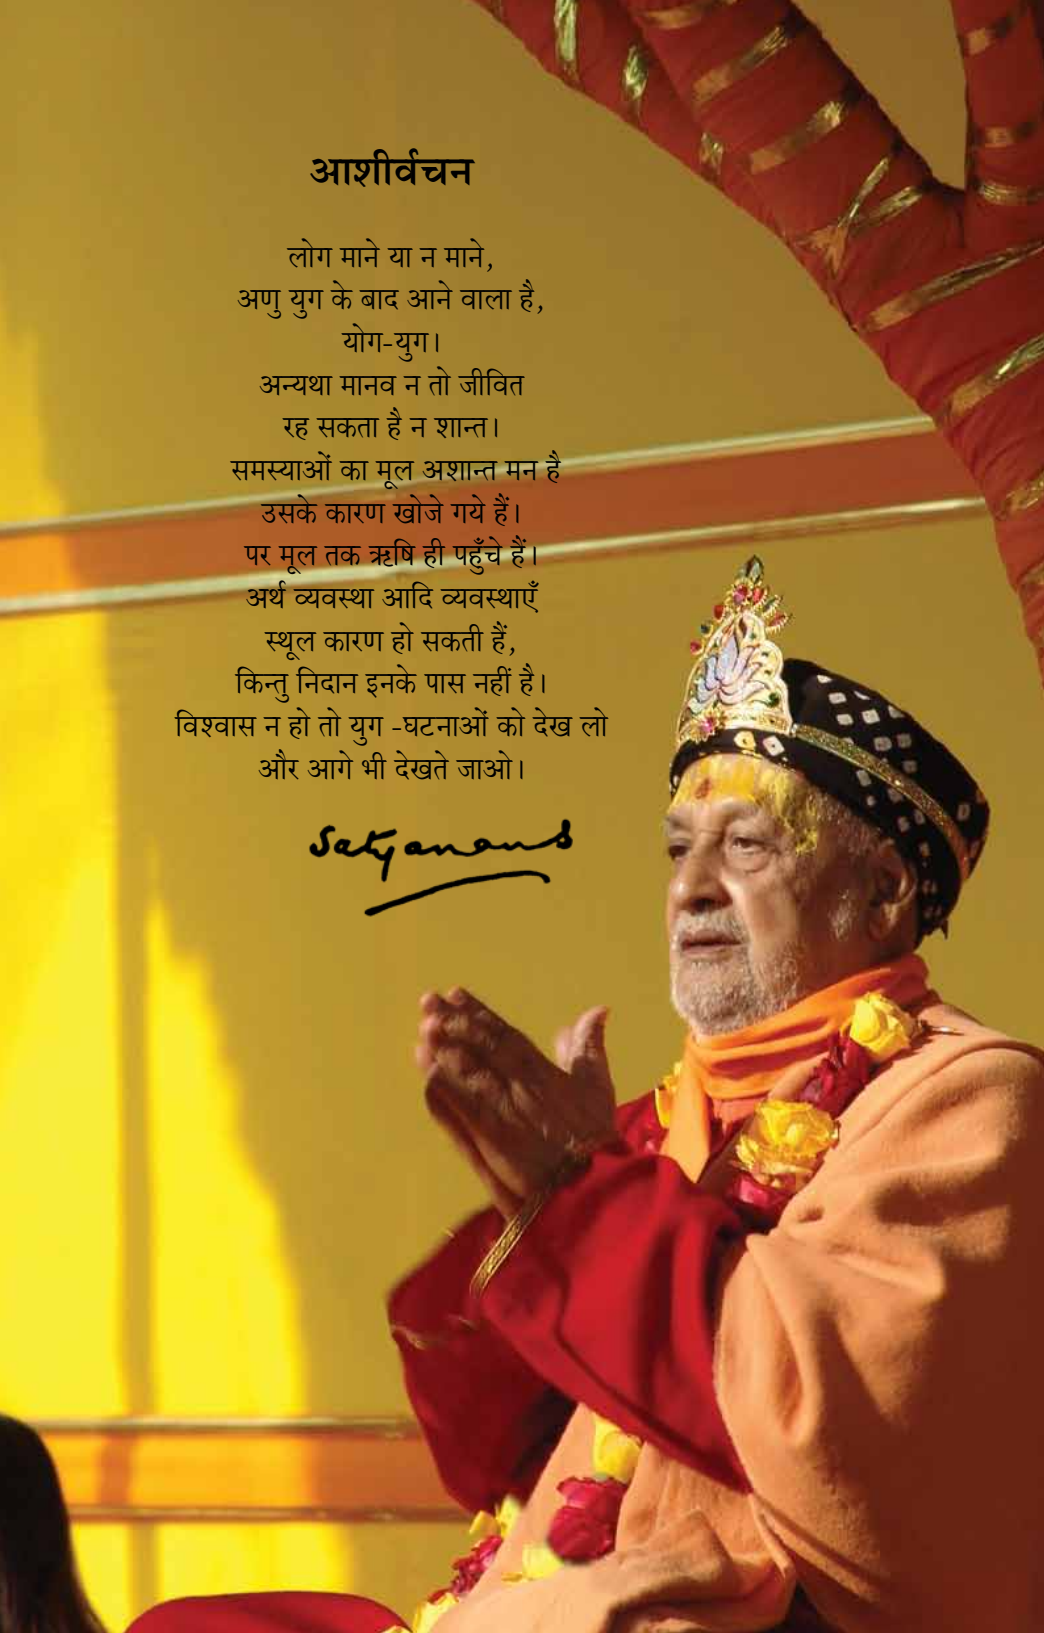 आशीर्वचन
लोग माने या न माने,
अणु युग के बाद आने वाला है,
योग-युग।
अन्यथा मानव न तो जीवित
रह सकता है न शान्त।
समस्याओं का मूल अशान्त मन है
उसके कारण खोजे गये हैं।
पर मूल तक ऋषि ही पहुँचे हैं।
अर्थ व्यवस्था आदि व्यवस्थाएँ
स्थूल कारण हो सकती हैं,
किन्तु निदान इनके पास नहीं है।
विश्वास न हो तो युग -घटनाओं को देख लो
और आगे भी देखते जाओ।
Satyanand